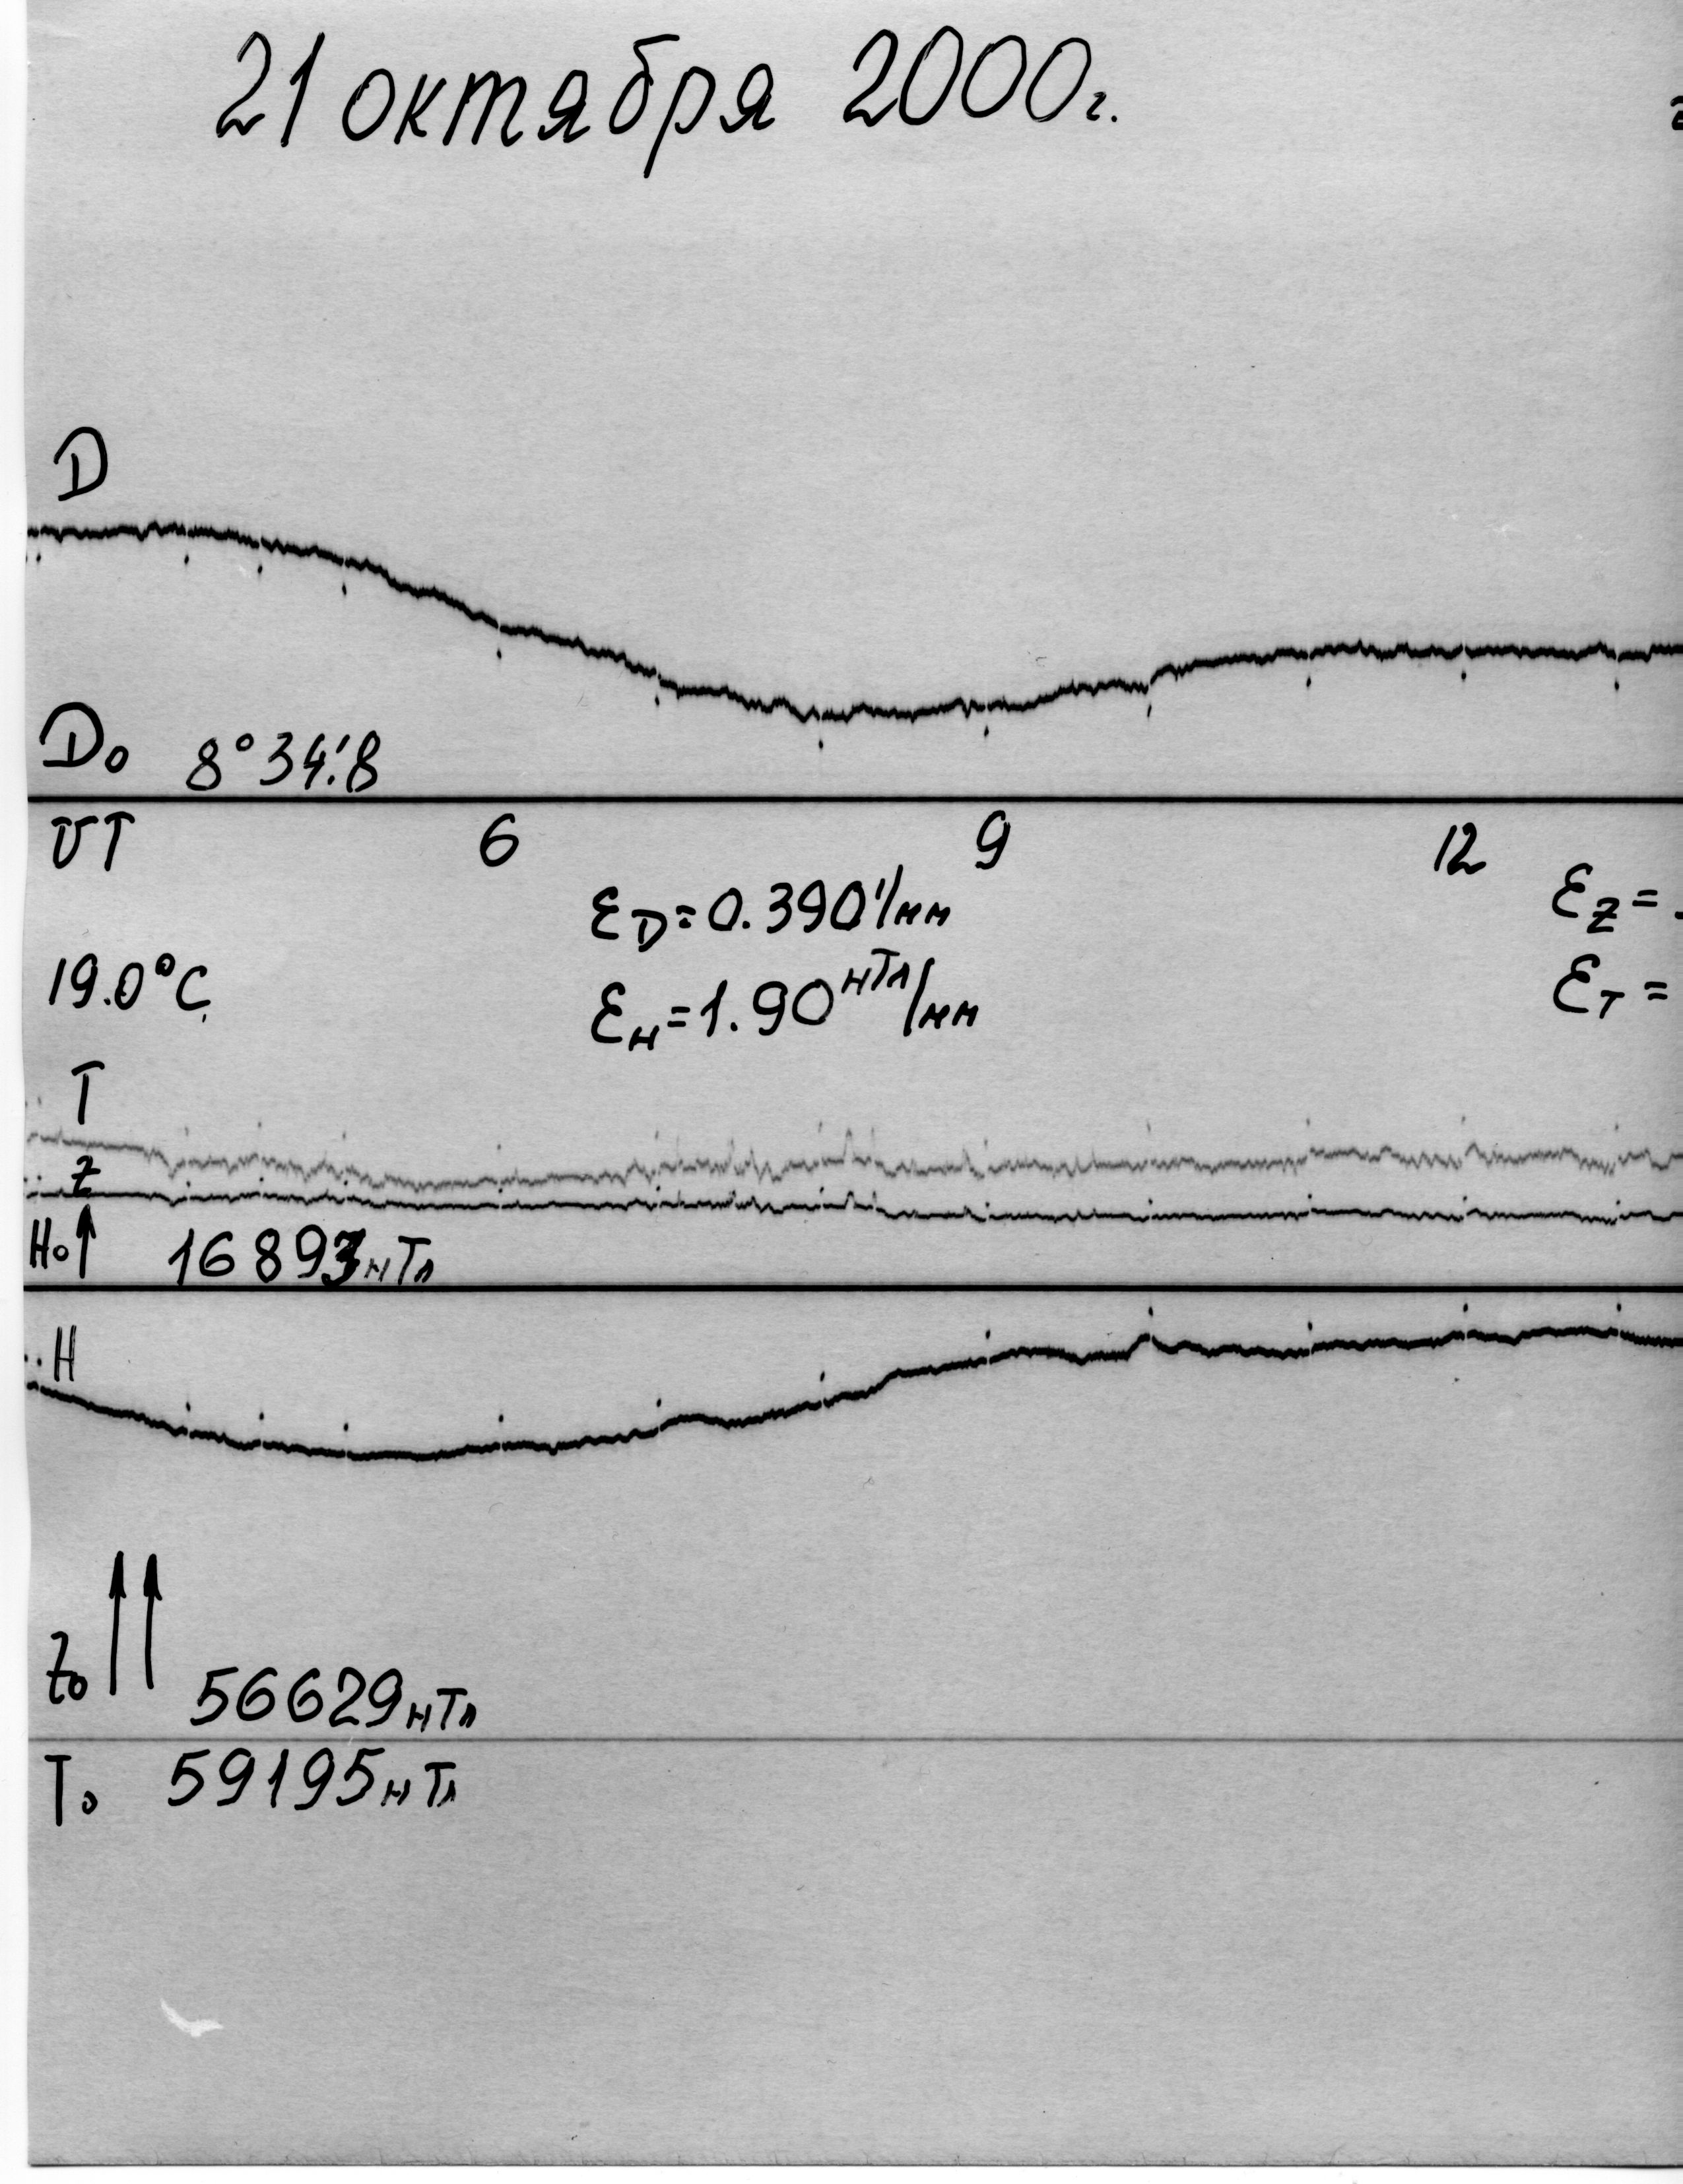 21 октября 2000г.
D
D₀ 8°34!8
UT 6 9 12
ε_D=0.390'/мм
ε_Z=
19.0°C
ε_H=1.90 нТл/мм
ε_T=
T
Z
H₀ 16893 нТл
H
Z₀ 56629 нТл
T₀ 59195 нТл